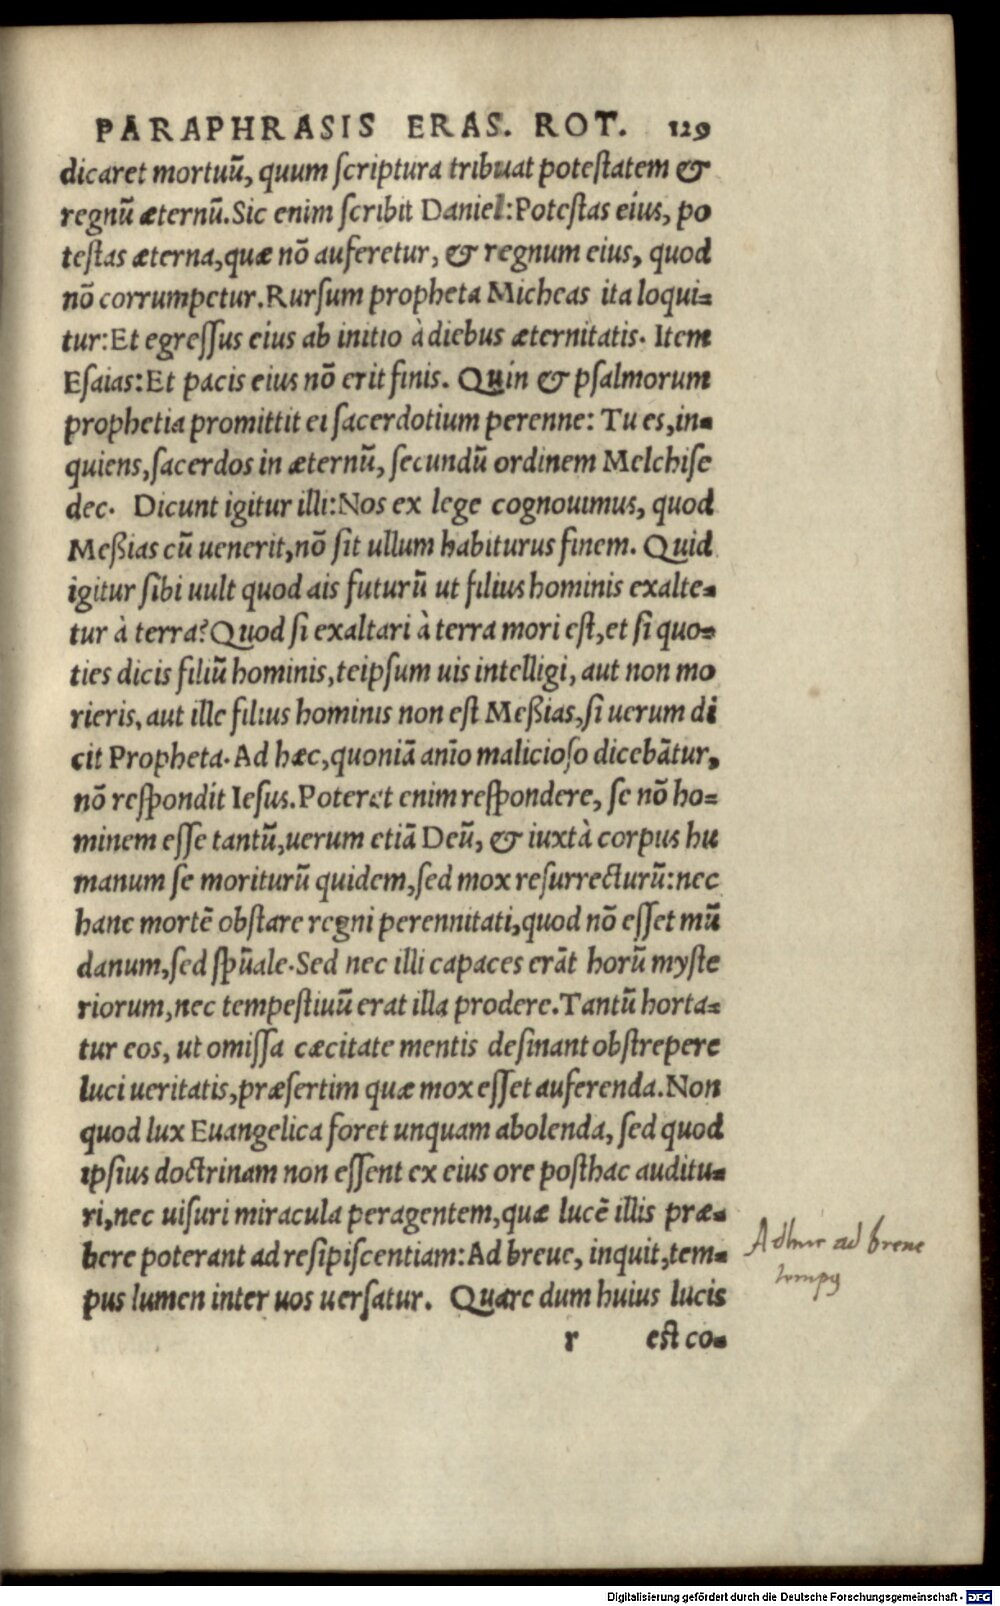 PARAPHRASIS ERAS. ROT. 129
dicaret mortuũ, quum ſcriptura tribuat poteſtatem &
regnũ æternũ. Sic enim ſcribit Daniel: Poteſtas eius, po
teſtas æterna, quæ nõ auferetur, & regnum eius, quod
nõ corrumpetur. Rurſum propheta Micheas ita loqui=
tur: Et egreſſus eius ab initio à diebus æternitatis. Item
Eſaias: Et pacis eius nõ erit finis. Quin & pſalmorum
prophetia promittit ei ſacerdotium perenne: Tu es, in=
quiens, ſacerdos in æternũ, ſecundũ ordinem Melchiſe
dec. Dicunt igitur illi: Nos ex lege cognouimus, quod
Meßias cũ uenerit, nõ ſit ullum habiturus finem. Quid
igitur ſibi uult quod ais futurũ ut filius hominis exalte=
tur à terra? Quod ſi exaltari à terra mori eſt, et ſi quo=
ties dicis filiũ hominis, teipſum uis intelligi, aut non mo
rieris, aut ille filius hominis non eſt Meßias, ſi uerum di
cit Propheta. Ad hæc, quoniã anĩo malicioſo dicebãtur,
nõ reſpondit Ieſus. Poterat enim reſpondere, ſe nõ ho=
minem eſſe tantũ, uerum etiã Deũ, & iuxtà corpus hu
manum ſe moriturũ quidem, ſed mox reſurrecturũ: nec
hanc mortẽ obſtare regni perennitati, quod nõ eſſet mũ
danum, ſed ſpũale. Sed nec illi capaces erãt horũ myſte
riorum, nec tempeſtiuũ erat illa prodere. Tantũ horta=
tur eos, ut omiſſa cæcitate mentis deſinant obſtrepere
luci ueritatis, præſertim quæ mox eſſet auferenda. Non
quod lux Euangelica foret unquam abolenda, ſed quod
ipſius doctrinam non eſſent ex eius ore poſthac auditu=
ri, nec uiſuri miracula peragentem, quæ lucẽ illis præ=
bere poterant ad reſipiſcentiam: Ad breue, inquit, tem=
pus lumen inter uos uerſatur. Quare dum huius lucis
r est co=
Adhuc ad breue
tempꝰ
Digitalisierung gefördert durch die Deutsche Forschungsgemeinschaft - DFG